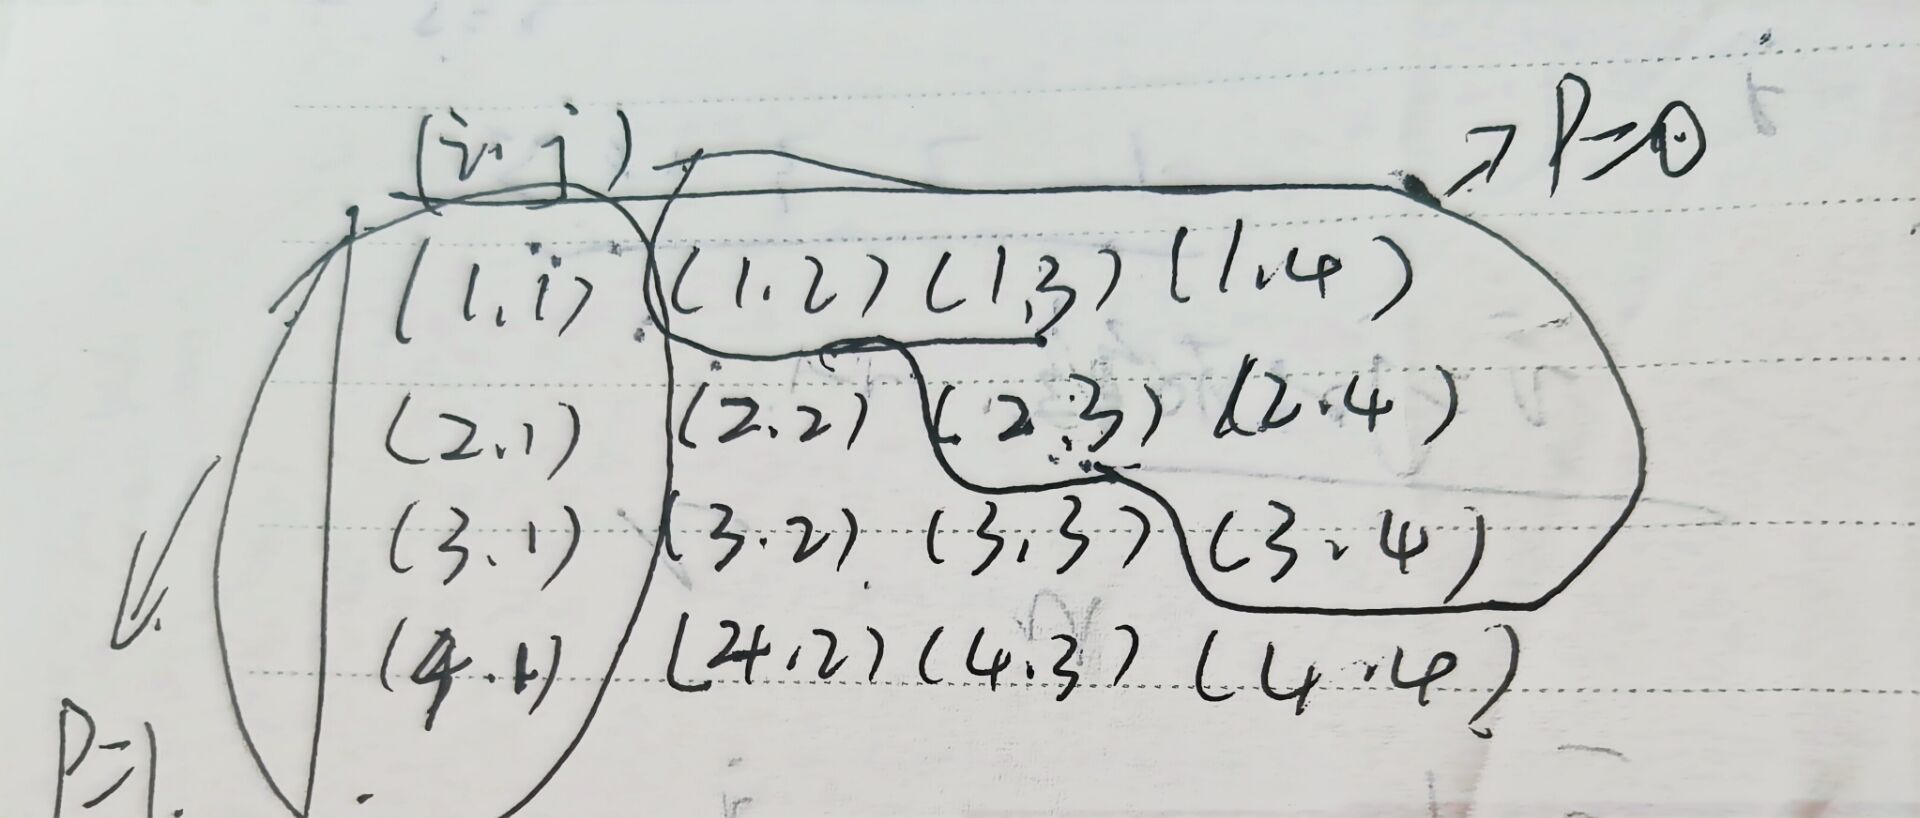 (i.j) → P=0
(1.1) (1.2) (1.3) (1.4)
(2.1) (2.2) (2.3) (2.4)
(3.1) (3.2) (3.3) (3.4)
(4.1) (4.2) (4.3) (4.4)
P=1.